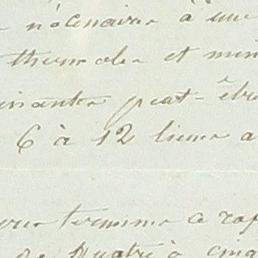 nécessaires à une
thermales et min
peut-être
6 à 12 lieues a
termina a rap
de quatre à cinq